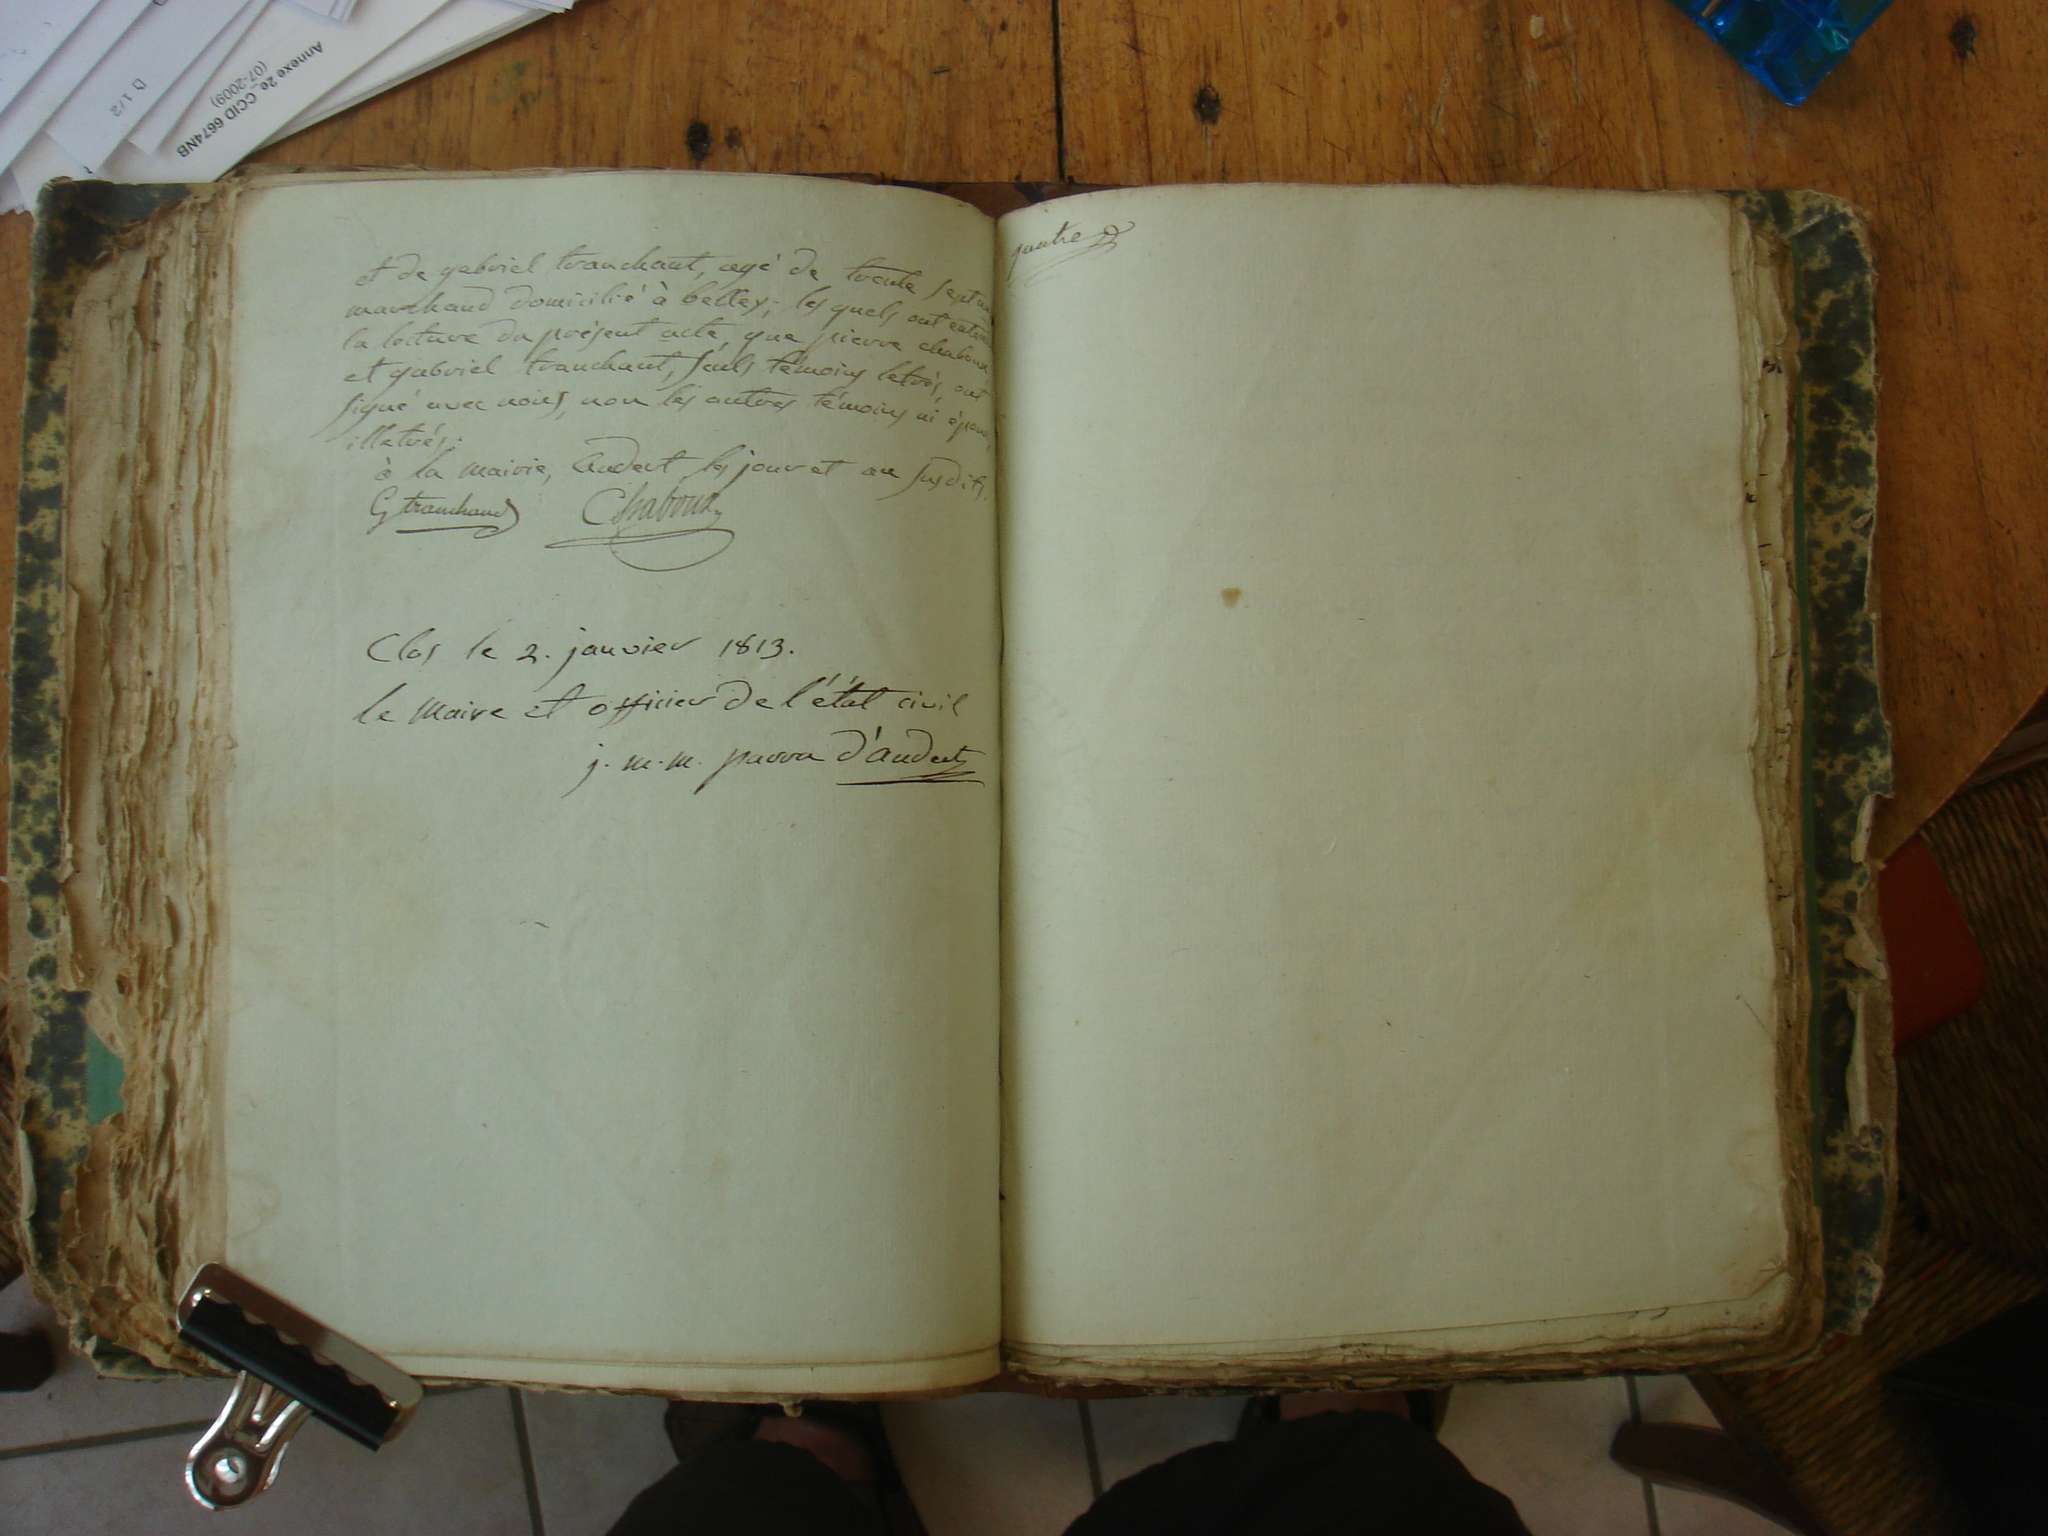 Annexe 2e- CCID 6674NB
(07-2009)
B 1/2
et de gabriel tranchant, agé de trente sept ans
marchand domicilié à belley; les quels ont entendu
la lecture du présent acte, que pierre chaboux
et gabriel tranchant, seuls témoins letrés, ont
signé avec nous, non les autres témoins ni époux,
illetrés.
à la mairie, Andert les jour et an susdits.
G tranchand Chaboux
Clos le 2. janvier 1813.
le Maire et officier de l'état civil
j. m. m. parra d'andert
quatre